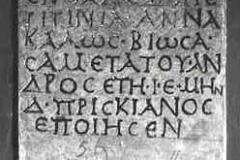 ΤΙΤΙΝΙΑ·ΑΝΝΑ
ΚΑΛΩΣ·ΒΙΩΣΑ·
ΣΑΜΕΤΑΤΟΥΑΝ
ΔΡΟΣΕΤΗ·ΙΕ·ΜΗΝ
Δ·ΠΡΙΣΚΙΑΝΟΣ
ΕΠΟΙΗСΕΝ